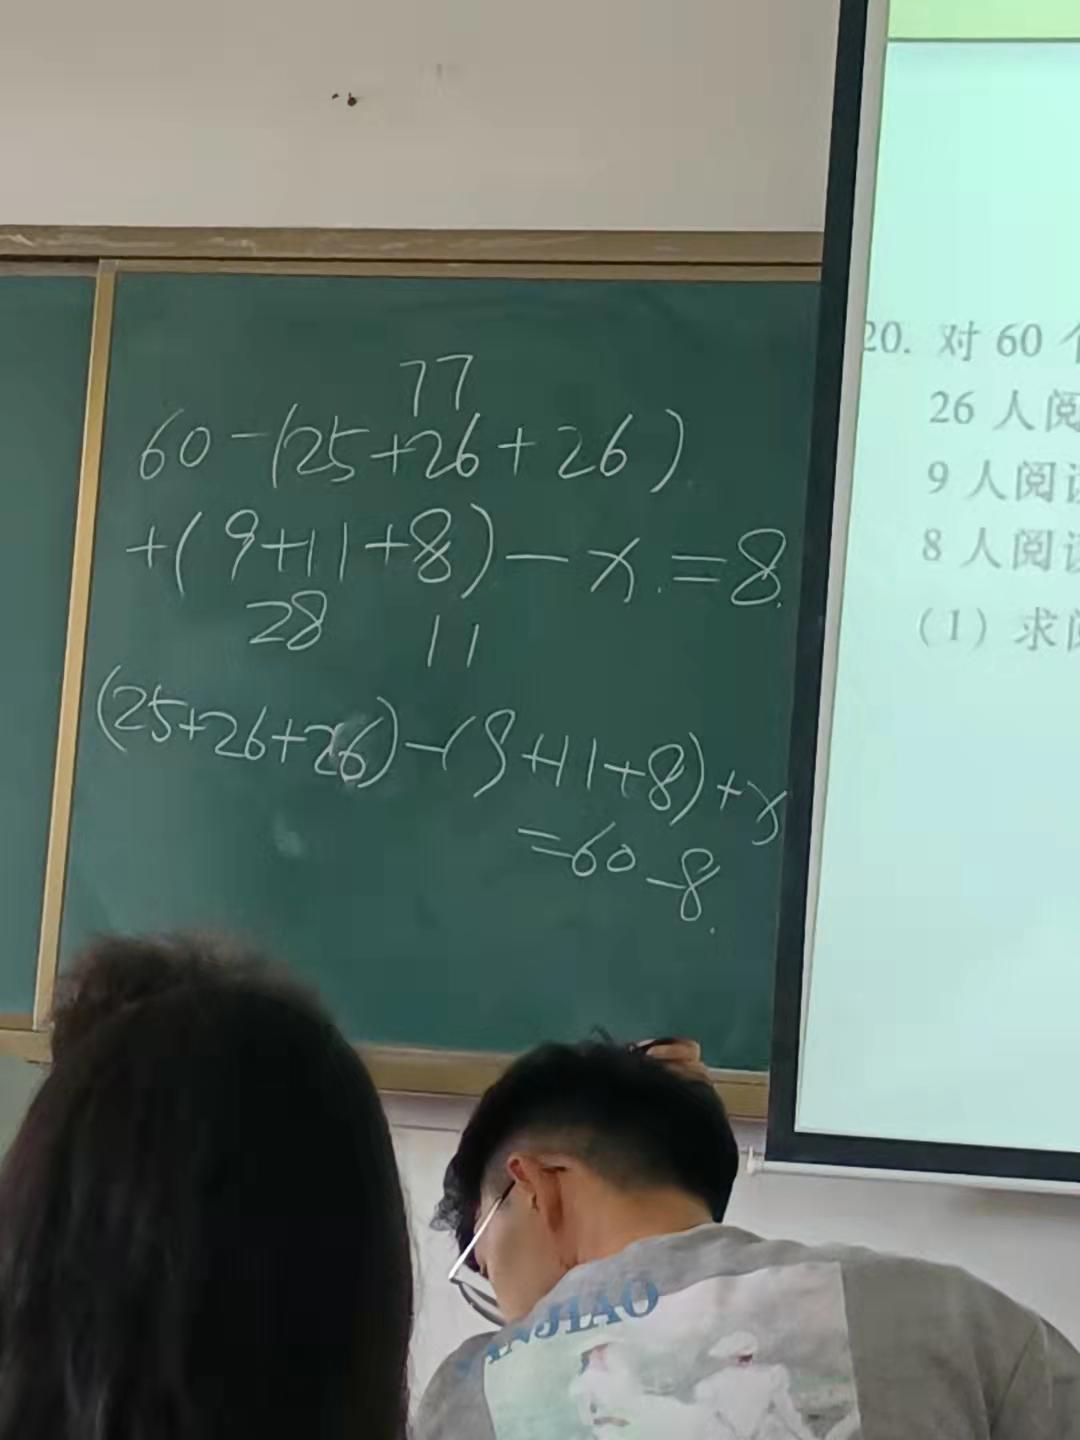 77
60-(25+26+26)
+(9+11+8)-x.=8.
28 11
(25+26+26)-(9+11+8)+x
=60-8.
20. 对60个
26人阅
9人阅读
8人阅读
(1)求阅
ANJIAO